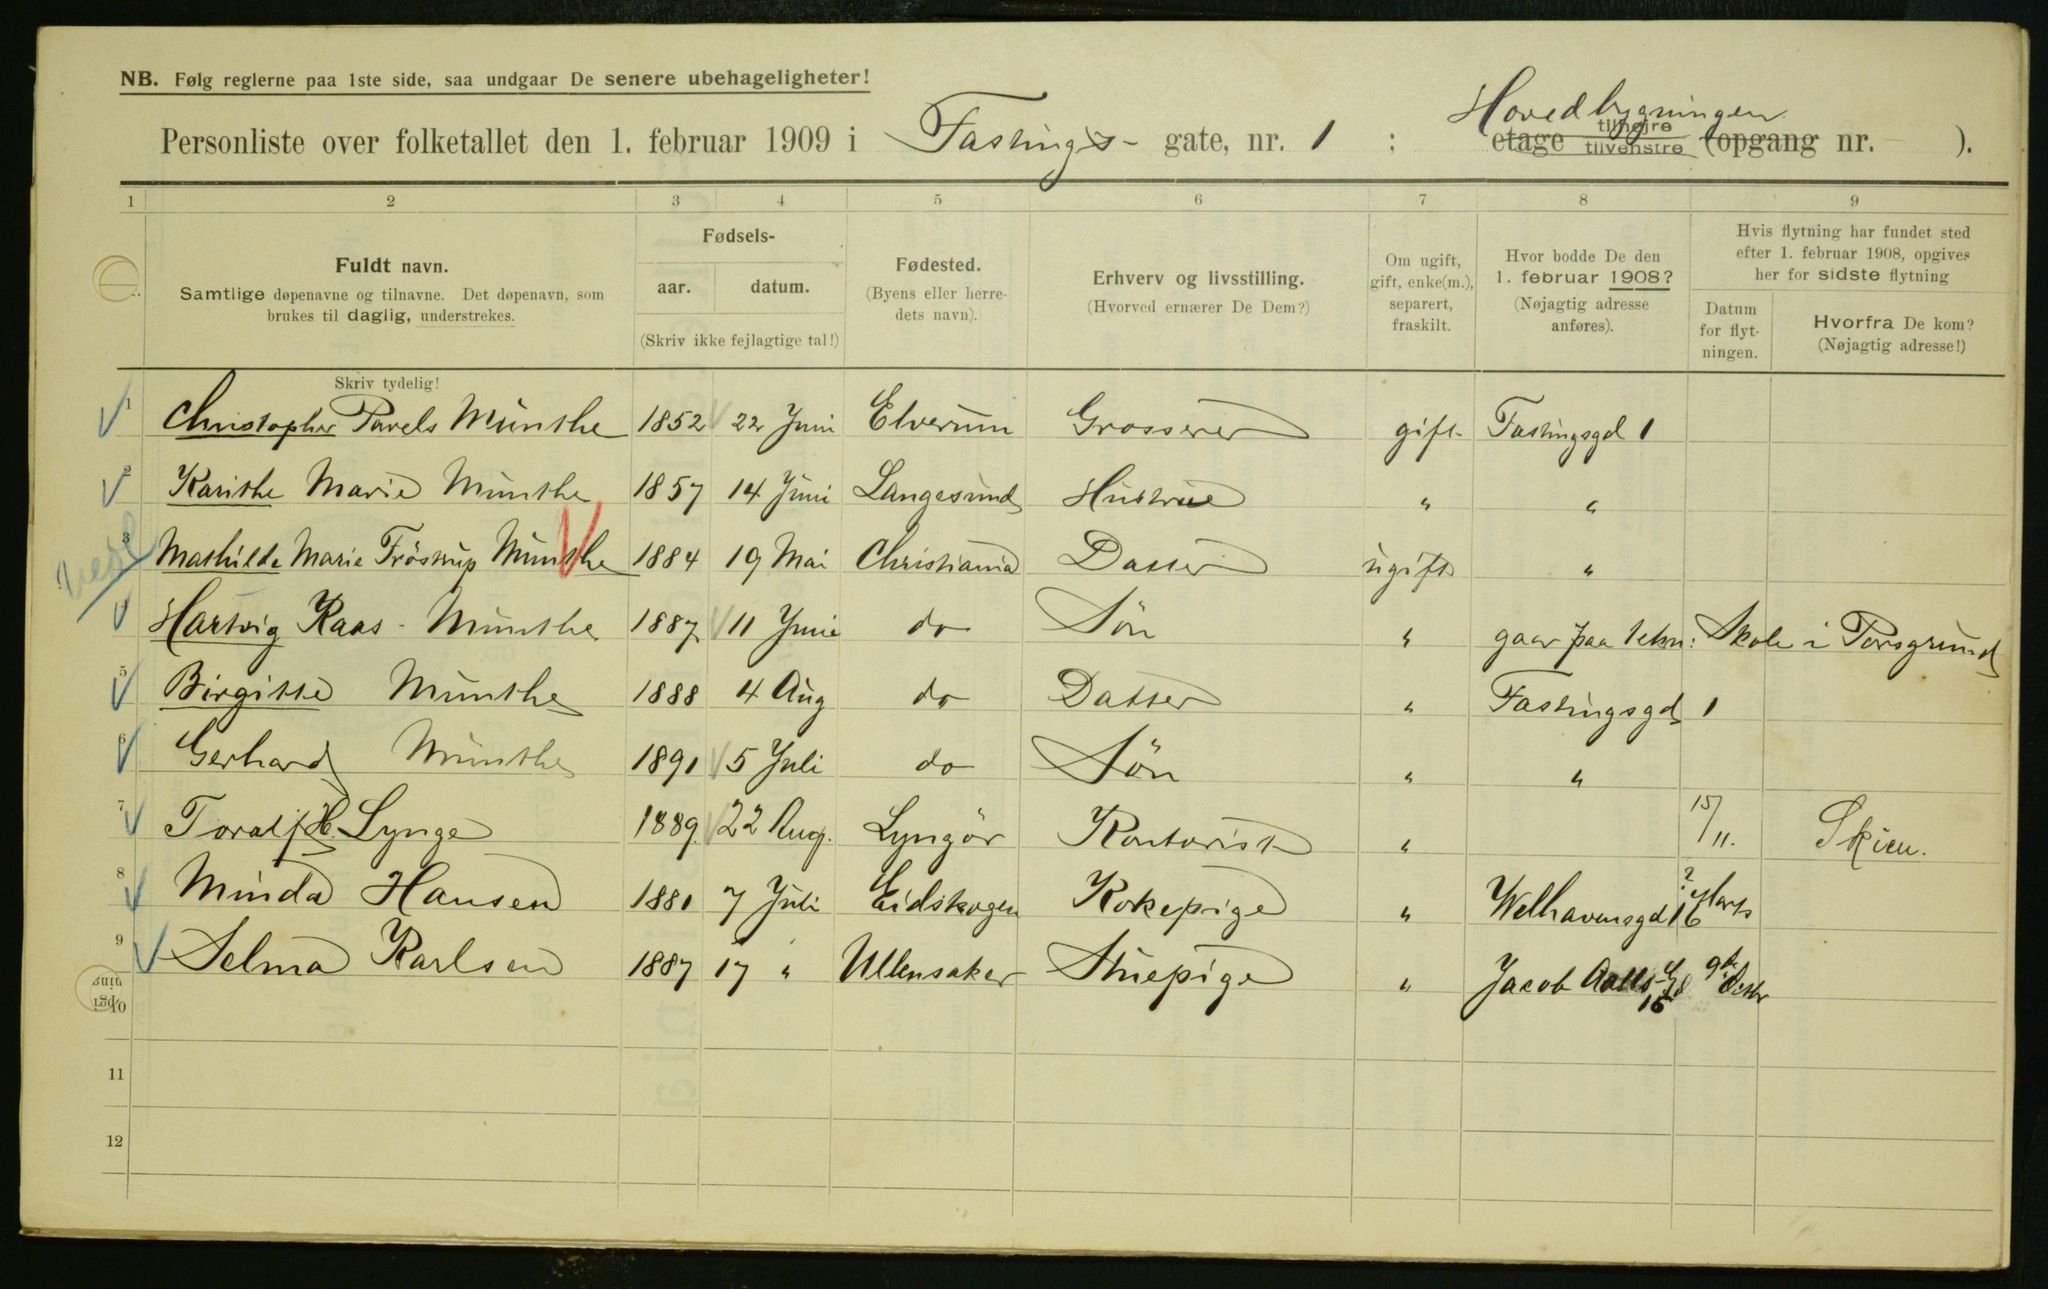 NB. Følg reglerne paa 1ste side, saa undgaar De senere ubehageligheter!
Hovedbygningen
Personliste over folketallet den 1. februar 1909 i Fastings- gate, nr. 1 ; etage tilhøire tilvenstre (opgang nr. ).
1 2 3 4 5 6 7 8 9
Fuldt navn.
Samtlige døpenavne og tilnavne. Det døpenavn, som
brukes til daglig, understrekes.
Skriv tydelig!
Fødsels-
aar. datum.
(Skriv ikke fejlagtige tal!)
Fødested.
(Byens eller herre-
dets navn).
Erhverv og livsstilling.
(Hvorved ernærer De Dem?)
Om ugift,
gift, enke(m.),
separert,
fraskilt.
Hvor bodde De den
1. februar 1908?
(Nøjagtig adresse
anføres).
Hvis flytning har fundet sted
efter 1. februar 1908, opgives
her for sidste flytning
Datum
for flyt-
ningen.
Hvorfra De kom?
(Nøjagtig adresse!)
1 Christopher Pavels Munthe 1852 22 Juni Elverum Grosserer gift Fastingsgd 1
2 Karithe Marie Munthe 1857 14 Juni Langesund Hustrue " "
3 Mathilde Marie Fröstrup Munthe 1884 19 Mai Christiania Datter ugift "
4 Hartvig Kaas - Munthe 1887 11 Juni do Sön " gaar paa tekn: Skole i Porsgrund
5 Birgitte Munthe 1888 4 Aug do Datter " Fastingsgd 1
6 Gerhard Munthe 1891 5 Juli do Sön " "
7 Toralf H. Lynge 1889. 22 Aug. Lyngör Kontorist " 15/11. Skien.
8 Minda Hansen 1881 7 Juli Eidskogen Kokepige " Welhavensgd 16 ? Marts
9 Selma Karlsen 1887 17 " Ullensaker Stuepige " Jacob Aalls Gd 15 9de
10
11
12